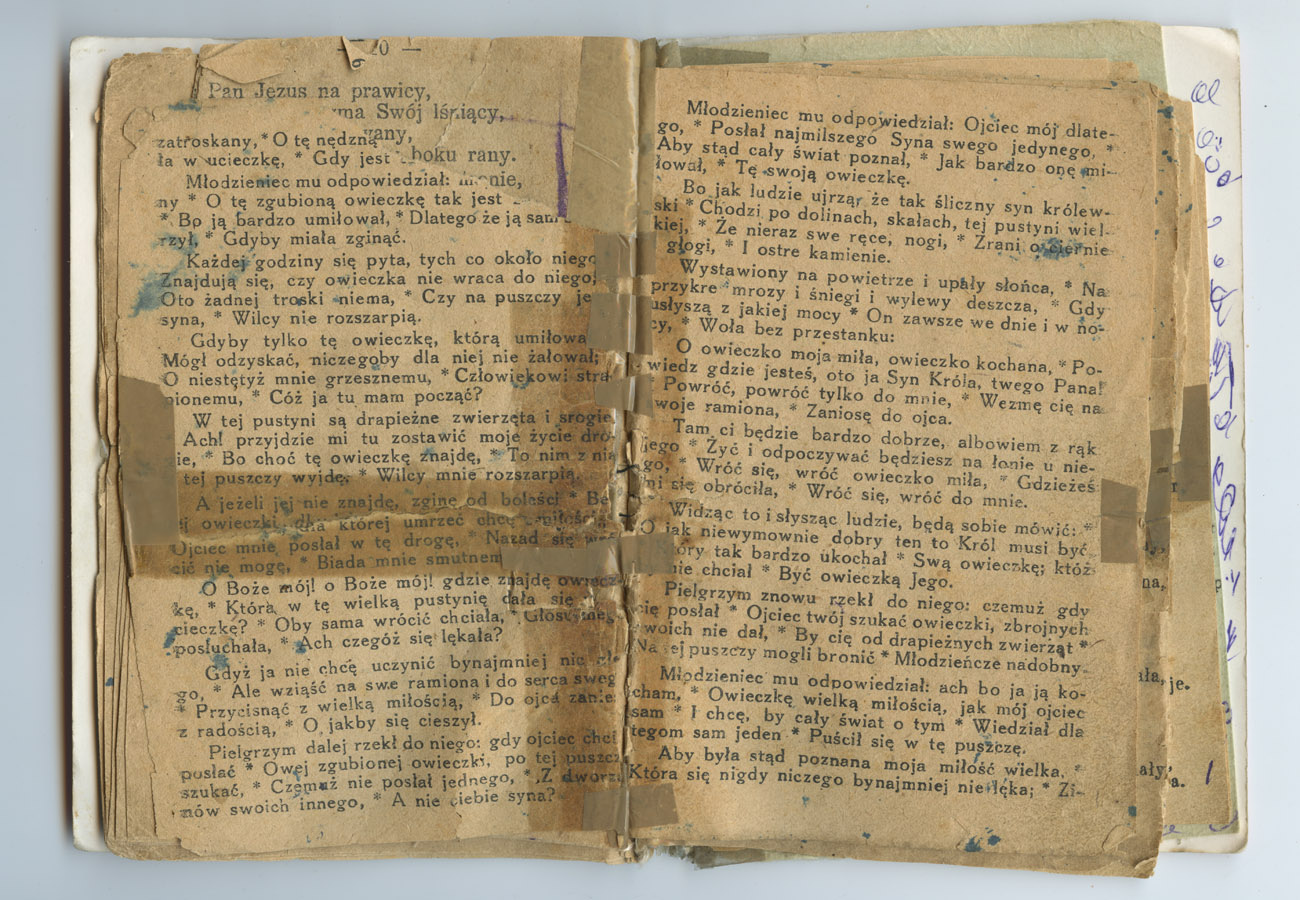 — 20 —
Pan Jezus na prawicy,
ma Swój lśniący,
zatroskany, * O tę nędzną
ła w ucieczkę, * Gdy jest boku rany.
Młodzieniec mu odpowiedział:
ny * O tę zgubioną owieczkę tak jest
* Bo ją bardzo umiłował, * Dlatego że ją sam
rzył, * Gdyby miała zginąć.
Każdej godziny się pyta, tych co około niego
Znajdują się, czy owieczka nie wraca do niego;
Oto żadnej troski niema, * Czy na puszczy je
syna, * Wilcy nie rozszarpią.
Gdyby tylko tę owieczkę, którą umiłowa
Mógł odzyskać, niczegoby dla niej nie żałował;
O niestętyż mnie grzesznemu, * Człowiekowi stra
pionemu, * Cóż ja tu mam począć?
W tej pustyni są drapieżne zwierzęta i srogie
Ach! przyjdzie mi tu zostawić moje życie dro-
ie, * Bo choć tę owieczkę znajdę, * To nim z nią
tej puszczy wyjdę, * Wilcy mnie rozszarpią.
A jeżeli jej nie znajdę, zginę od boleści * Be
ej owieczki, dla której umrzeć chcę z miłości,
Ojciec mnie posłał w tę drogę, * Nazad się wró
cić nie mogę, * Biada mnie smutnem
O Boże mój! o Boże mój! gdzie znajdę owiecz
kę, * Która w tę wielką pustynię dała się
cieczkę? * Oby sama wrócić chciała, * Głosu meg
posłuchała, * Ach czegóż się lękała?
Gdyż ja nie chcę uczynić bynajmniej nic
go, * Ale wziąść na swe ramiona i do serca sweg
* Przycisnąć z wielką miłością, * Do ojca zanie
z radością, * O jakby się cieszył.
Pielgrzym dalej rzekł do niego: gdy ojciec chci
posłać * Owej zgubionej owieczki, po tej puszcz
szukać, * Czemuż nie posłał jednego, * Z dworz
nów swoich innego, * A nie ciebie syna?
Młodzieniec mu odpowiedział: Ojciec mój dlate-
go, * Posłał najmilszego Syna swego jedynego, *
Aby stąd cały świat poznał, * Jak bardzo onę mi-
łował, * Tę swoją owieczkę.
Bo jak ludzie ujrzą, że tak śliczny syn królew-
ski * Chodzi po dolinach, skałach, tej pustyni wiel-
kiej, * Że nieraz swe ręce, nogi, * Zrani o ciernie
głogi, * I ostre kamienie.
Wystawiony na powietrze i upały słońca, * Na
przykre mrozy i śniegi i wylewy deszcza, * Gdy
usłyszą z jakiej mocy * On zawsze we dnie i w no-
cy, * Woła bez przestanku:
O owieczko moja miła, owieczko kochana, * Po-
wiedz gdzie jesteś, oto ja Syn Króla, twego Pana!
* Powróć, powróć tylko do mnie, * Wezmę cię na
woje ramiona, * Zaniosę do ojca.
Tam ci będzie bardzo dobrze, albowiem z rąk
jego * Żyć i odpoczywać będziesz na łonie u nie-
go, * Wróć się, wróć owieczko miła, * Gdzieżeś
mi się obróciła, * Wróć się, wróć do mnie.
Widząc to i słysząc ludzie, będą sobie mówić: *
O jak niewymownie dobry ten to Król musi być
tóry tak bardzo ukochał * Swą owieczkę; któż
nie chciał * Być owieczką jego.
Pielgrzym znowu rzekł do niego: czemuż gdy
cię posłał * Ojciec twój szukać owieczki, zbrojnych
woich nie dał, * By cię od drapieżnych zwierząt *
Na tej puszczy mogli bronić * Młodzieńcze nadobny.
Młodzieniec mu odpowiedział: ach bo ja ją ko-
cham, * Owieczkę wielką miłością, jak mój ojciec
sam * I chcę, by cały świat o tym * Wiedział dla
tegom sam jeden * Puścił się w tę puszczę.
Aby była stąd poznana moja miłość wielka, *
Która się nigdy niczego bynajmniej nie lęka; * Zi-